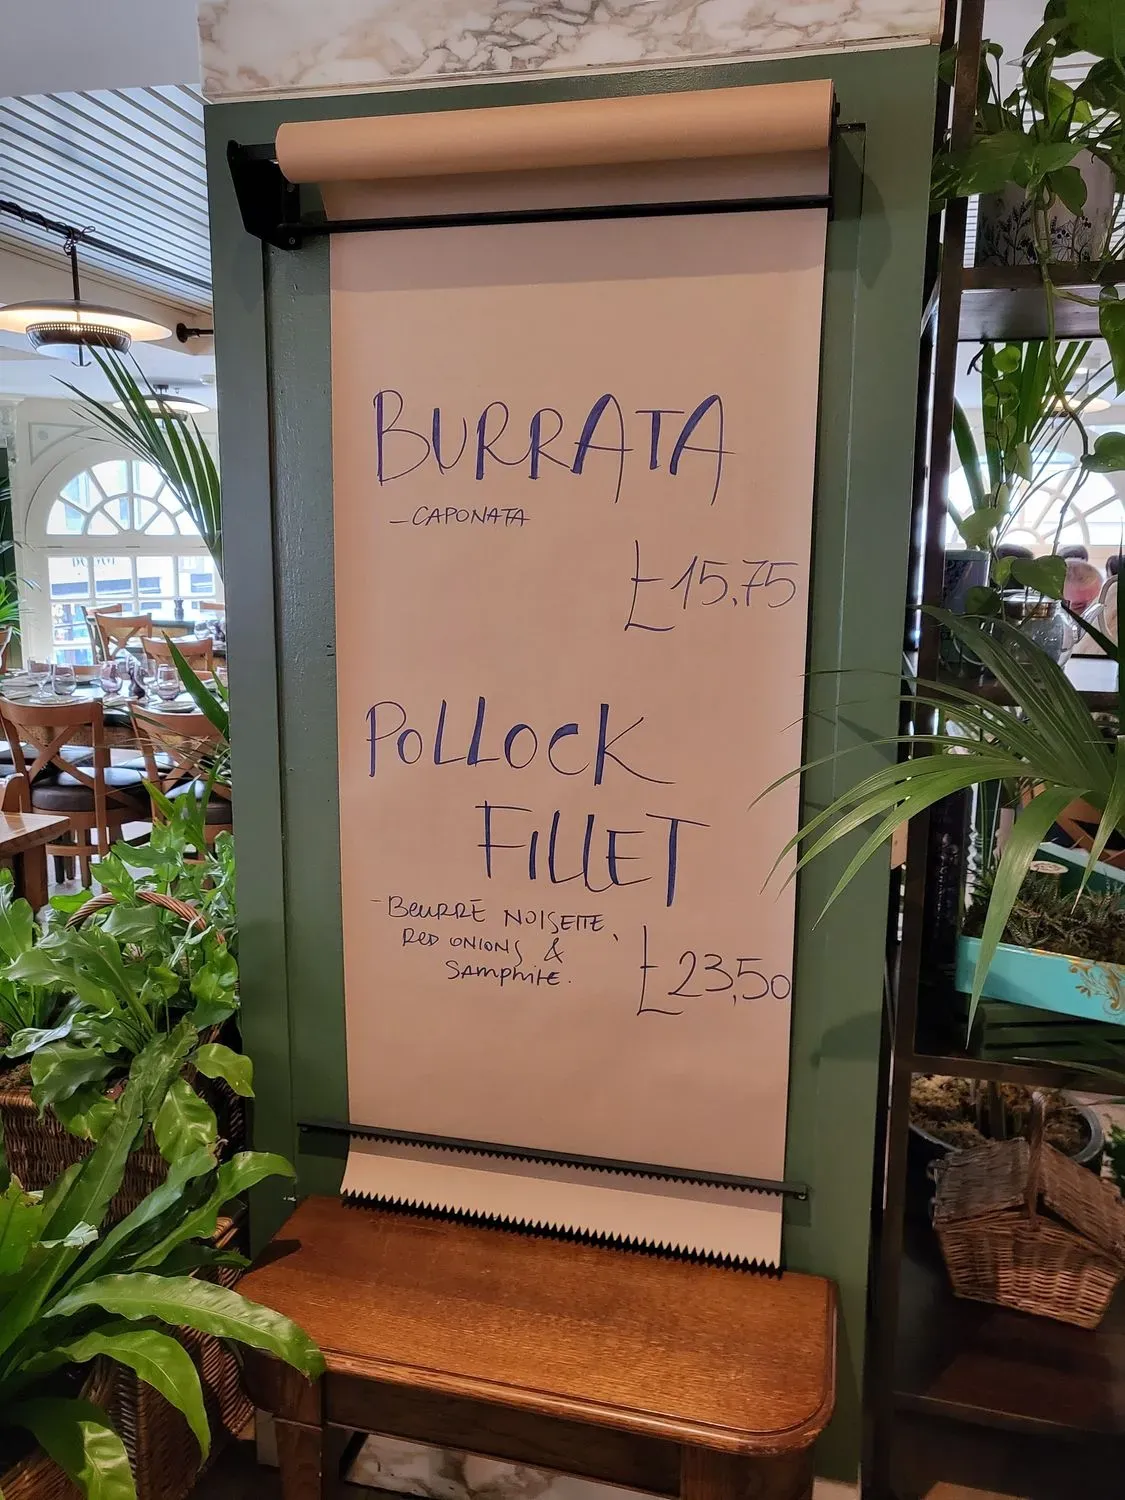 BURRATA
- CAPONATA
£15,75
POLLOCK
FILLET
- BEURRE NOISETTE,
RED ONIONS &
SAMPHIRE.
£23,50